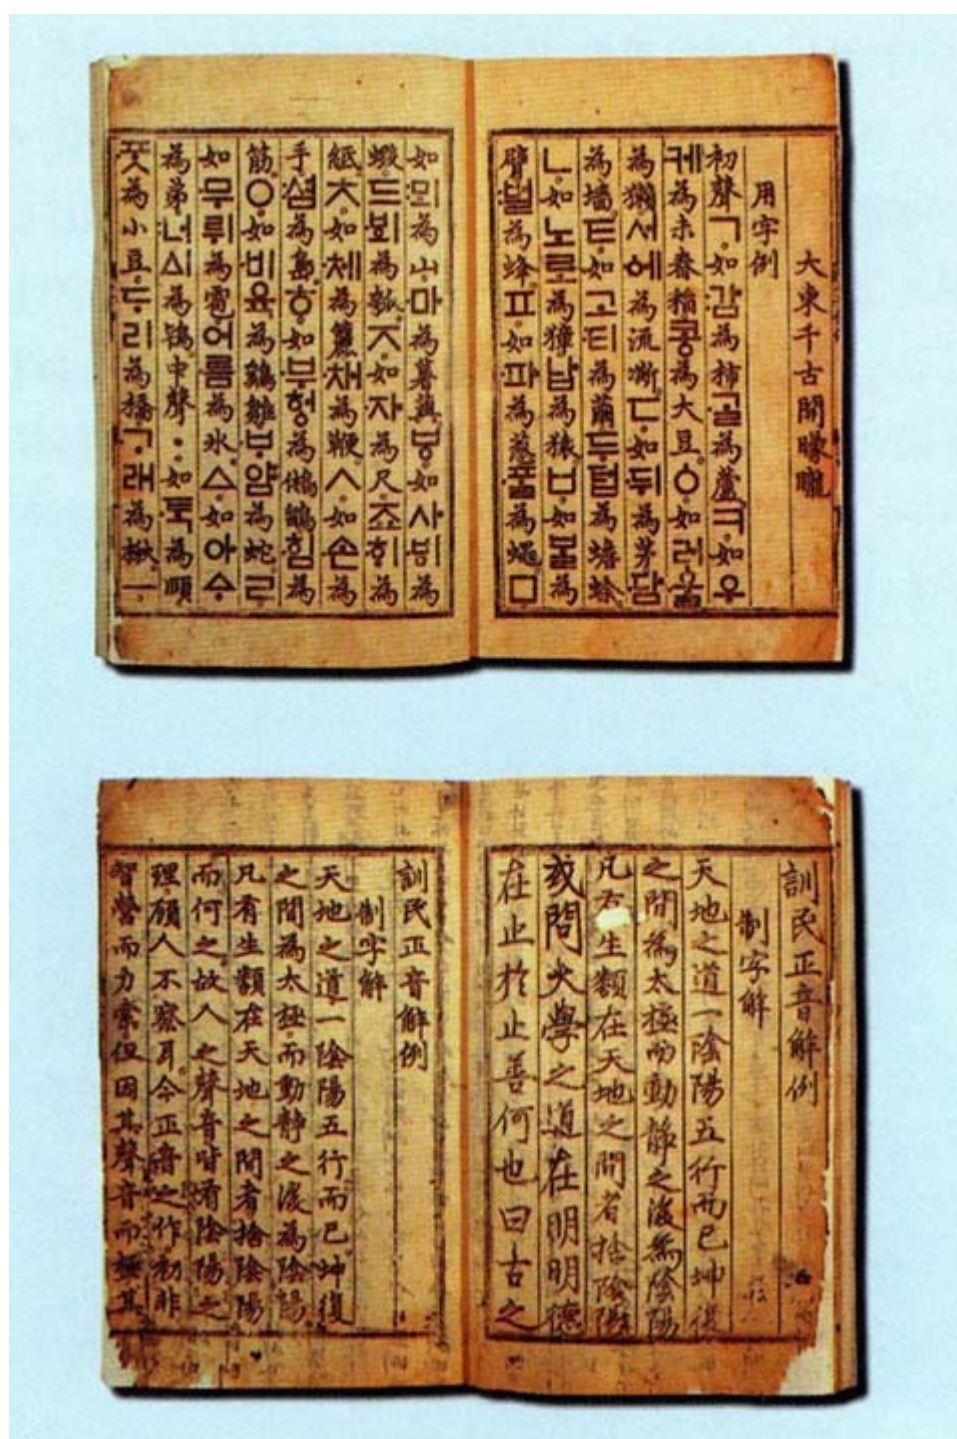 大東千古開矇矓
用字例
初聲ㄱ。如감為柿。ᄀᆞᆯ為蘆。ㅋ。如우
케為未舂稻。콩為大豆。ㆁ。如러울
為獺。서에為流凘。ㄷ。如뒤為茅。담
為墻。ㅌ。如고티為繭。두텁為蟾蜍。
ㄴ。如노로為獐。납為猿。ㅂ。如ᄇᆞᆯ為
臂。벌為蜂。ㅍ。如파為葱。ᄑᆞᆯ為蠅。ㅁ。
如뫼為山。마為薯藇。ㅸ。如사ᄫᅵ為
蝦。드ᄫᅴ為瓠。ㅈ。如자為尺。죠ᄒᆡ為
紙。ㅊ。如체為簏。채為鞭。ㅅ。如손為
手。셤為島。ㅎ。如부헝為鵂鶹。힘為
筋。ㅇ。如비육為鷄雛。ᄇᆞ얌為蛇。ㄹ。
如무뤼為雹。어름為氷。ㅿ。如아ᅀᆞ
為弟。너ᅀᅵ為鴇。中聲ㆍ。如ᄐᆞᆨ為頤。
ᄑᆞᆺ為小豆。ᄃᆞ리為橋。ᄀᆞ래為楸。ㅡ。
訓民正音解例
制字解
天地之道一陰陽五行而已坤復
之間為太極而動靜之後為陰陽
凡有生類在天地之間者捨陰陽
或問大學之道在明明德
在止於止善何也曰古之
訓民正音解例
制字解
天地之道一陰陽五行而已坤復
之間為太極而動靜之後為陰陽
凡有生類在天地之間者捨陰陽
而何之故人之聲音皆有陰陽之
理顧人不察耳今正音之作初非
智營而力索但因其聲音而極其